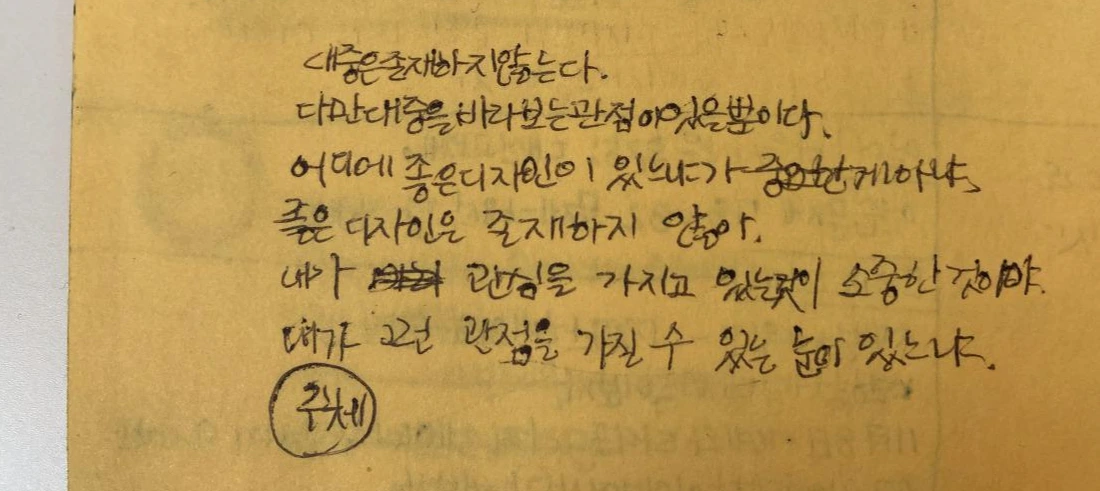 대중은 존재하지 않는다.
다만 대중을 바라보는 관점이 있을 뿐이다.
어디에 좋은 디자인이 있느냐가 중요한게 아냐.
좋은 디자인은 존재하지 않아.
내가 관심을 가지고 있는 것이 소중한 것이야.
내가 그런 관점을 가질 수 있는 눈이 있느냐.
주체